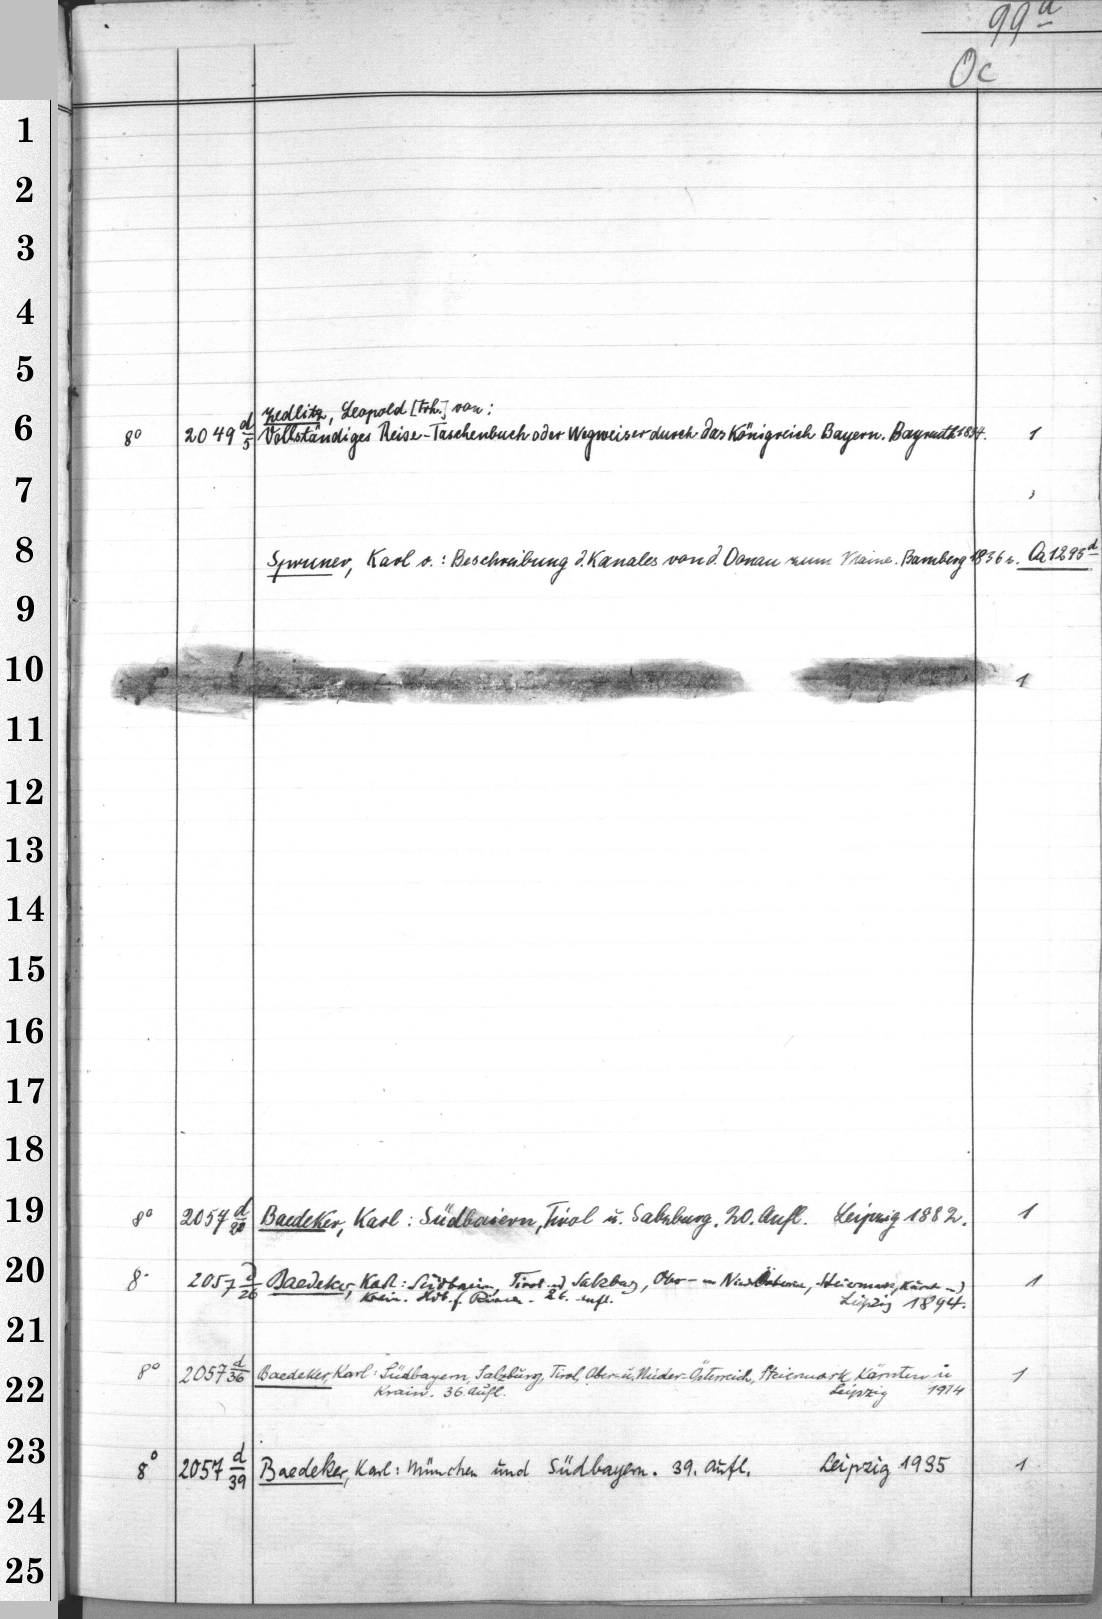 99a
Oc
1
2
3
4
5
Zedlitz, Leopold [Frh.] von:
6 8° 2049 d/5 Vollständiges Reise-Taschenbuch oder Wegweiser durch das Königreich Bayern. Bayreuth 1834. 1
7
8 Spruner, Karl v.: Beschreibung d. Kanales von d. Donau zum Maine. Bamberg 1836 Oa 1295d
9
10 1
11
12
13
14
15
16
17
18
19 8° 2057 d/20 Baedeker, Karl: Südbaiern, Tirol u. Salzburg. 20. Aufl. Leipzig 1882. 1
20 8° 2057 d/26 Baedeker, Karl: Südbaiern, Tirol Salzburg, Ober- Steiermark, Kärnt- 1
Krain. Hdb. f. Reisen. 26. Aufl. Leipzig 1894.
21
8° 2057 d/36 Baedeker, Karl: Südbayern, Salzburg, Tirol, Ober- u. Nieder-Österreich, Steiermark, Kärnten u 1
22 Krain. 36. Aufl. Leipzig 1914
23 8° 2057 d/39 Baedeker, Karl: München und Südbayern. 39. Aufl. Leipzig 1935 1
24
25